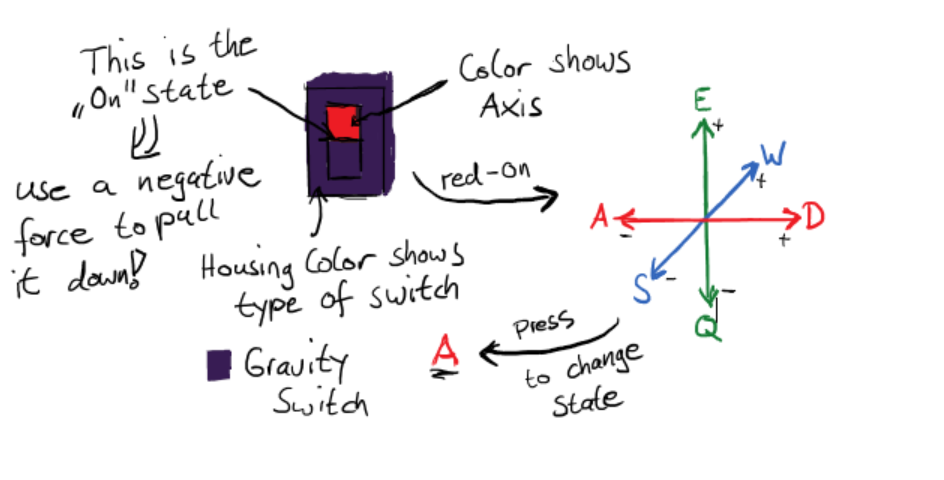 This is the
„On" state
use a negative
force to pull
it down!
Color shows
Axis
Housing Color shows
type of switch
Gravity
Switch
red-on
E
+
W
+
A
-
D
+
S
-
Q
-
Press
to change
State
A